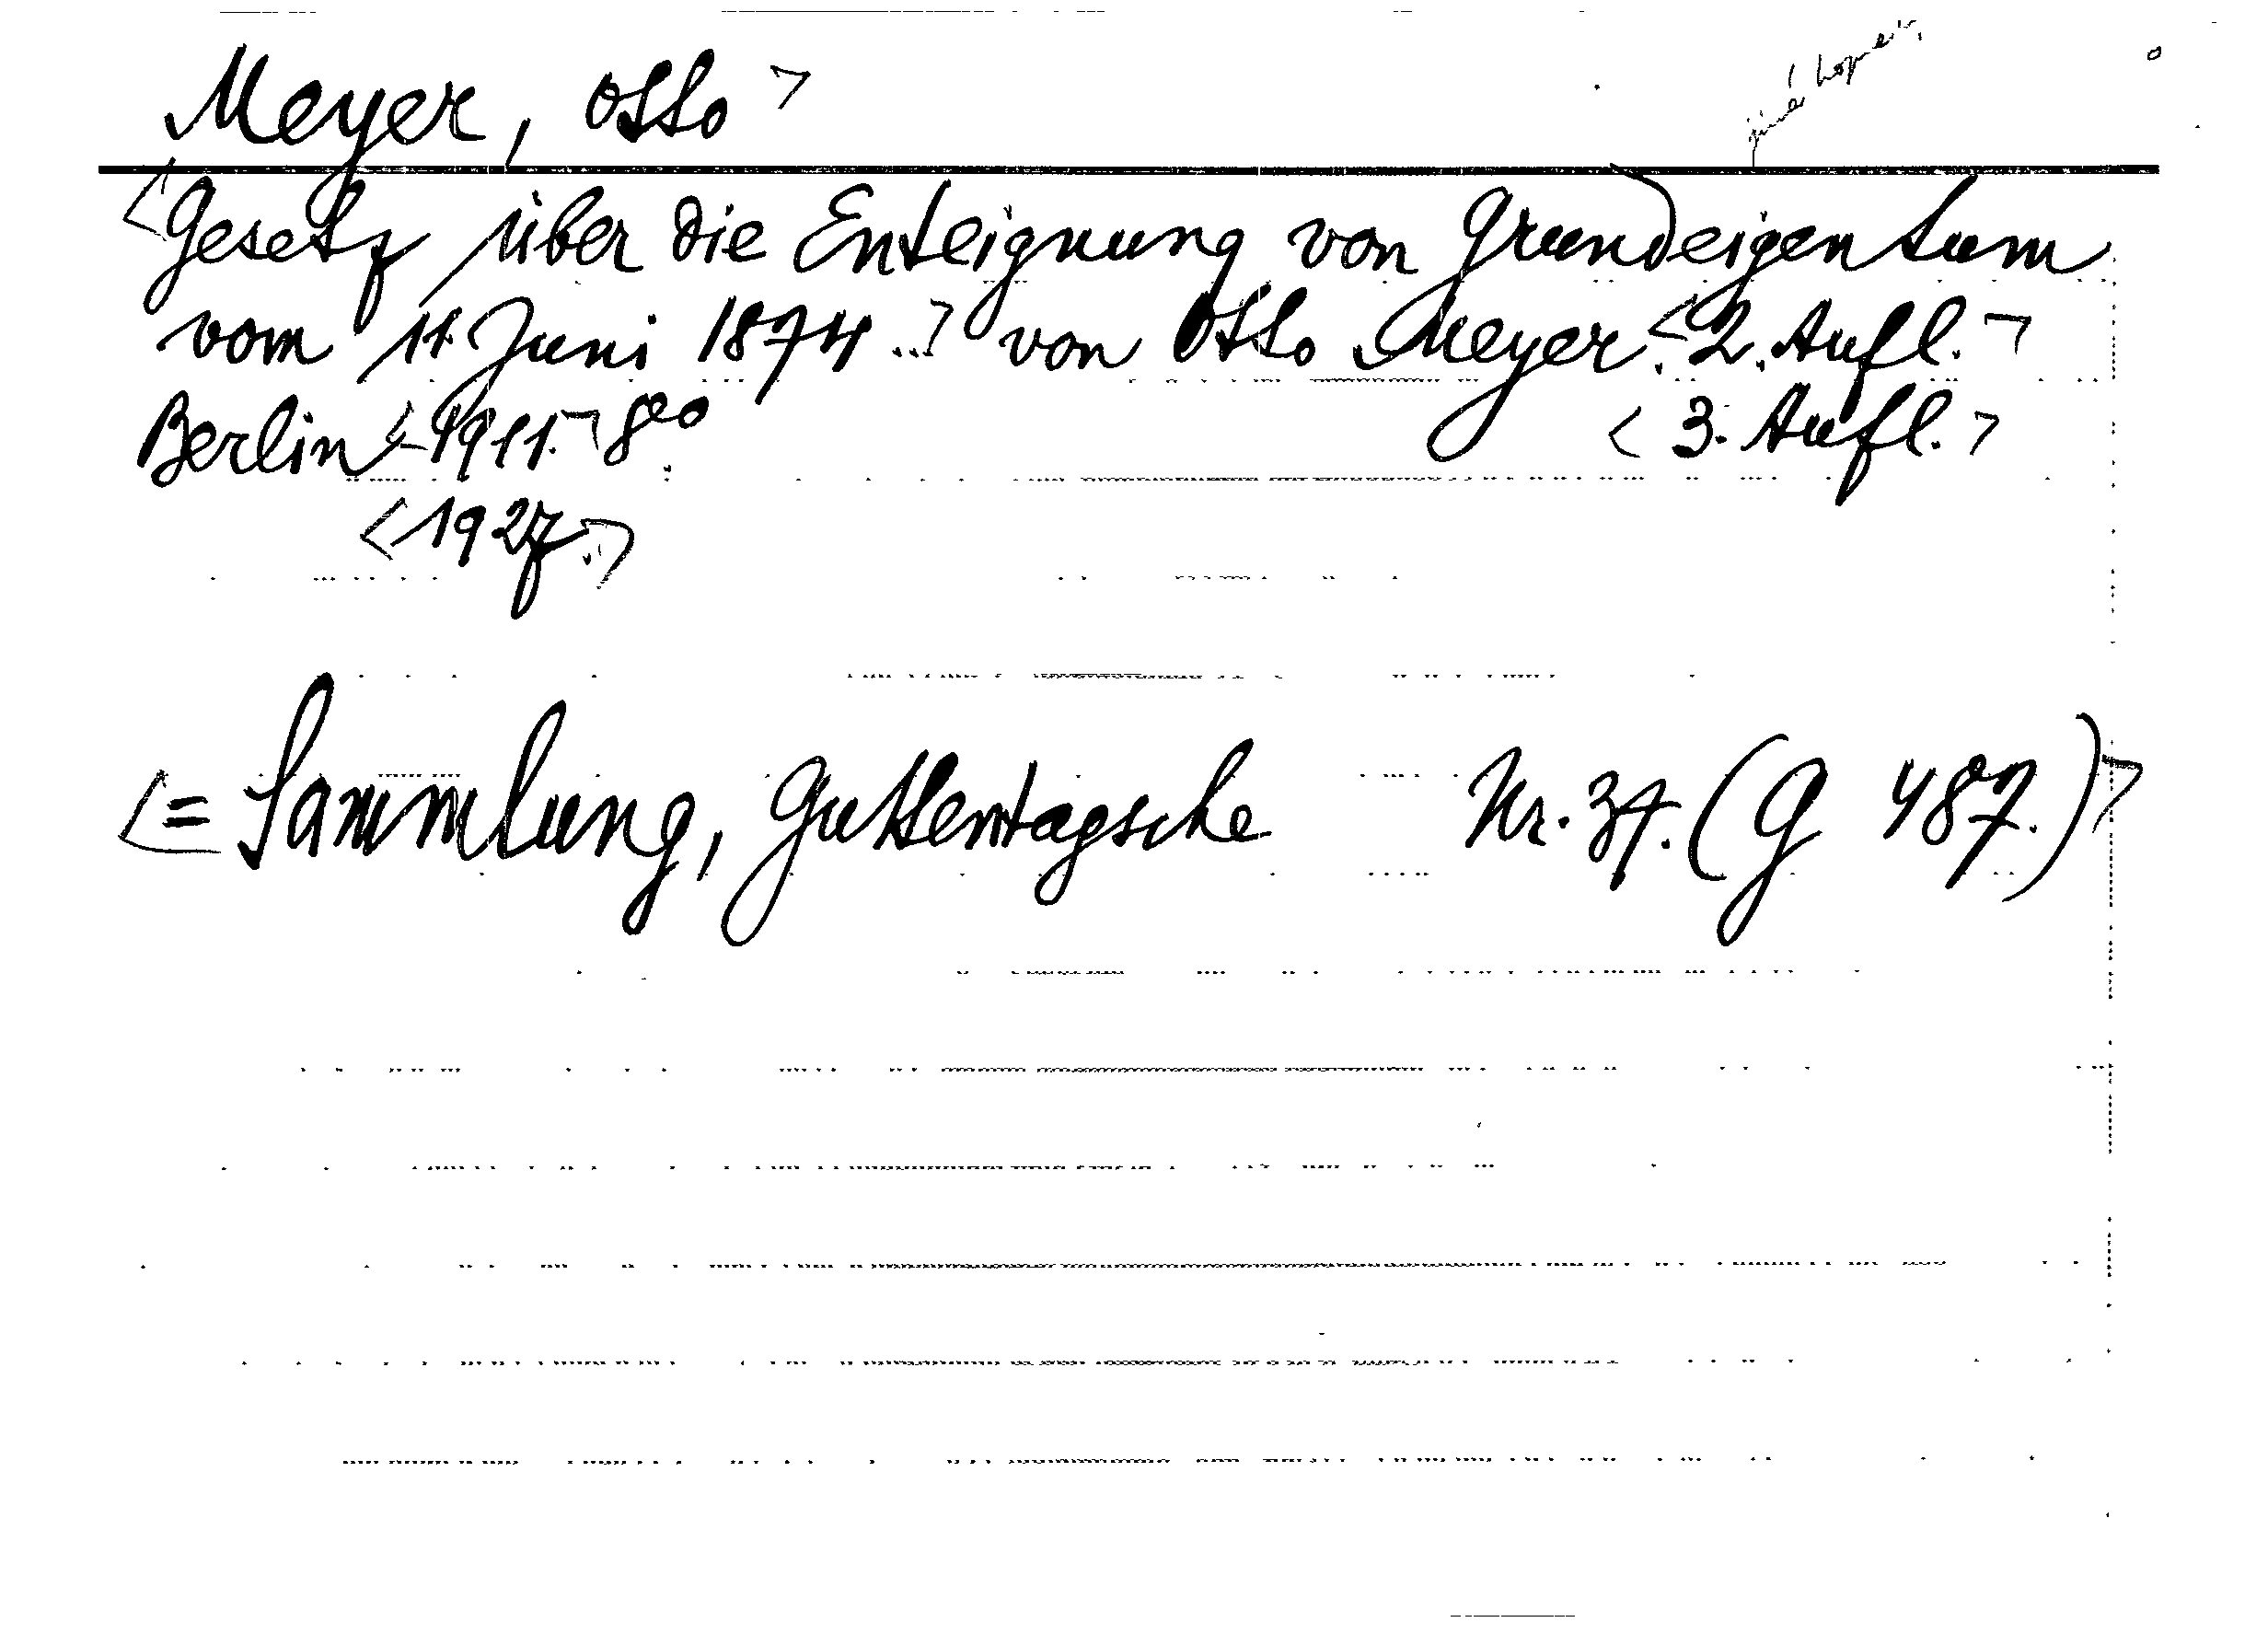 Meyer, Otto ⌝
<Gesetz über die Enteignung von Grundeigentum
vom 11. Juni 1874 ..⌝ von Otto Meyer. <2. Aufl.⌝
Berlin <1911.⌝ 8°° <3. Aufl.⌝
<1927.⌝
<= Sammlung, Guttentagsche Nr. 37. (G 487.)⌝